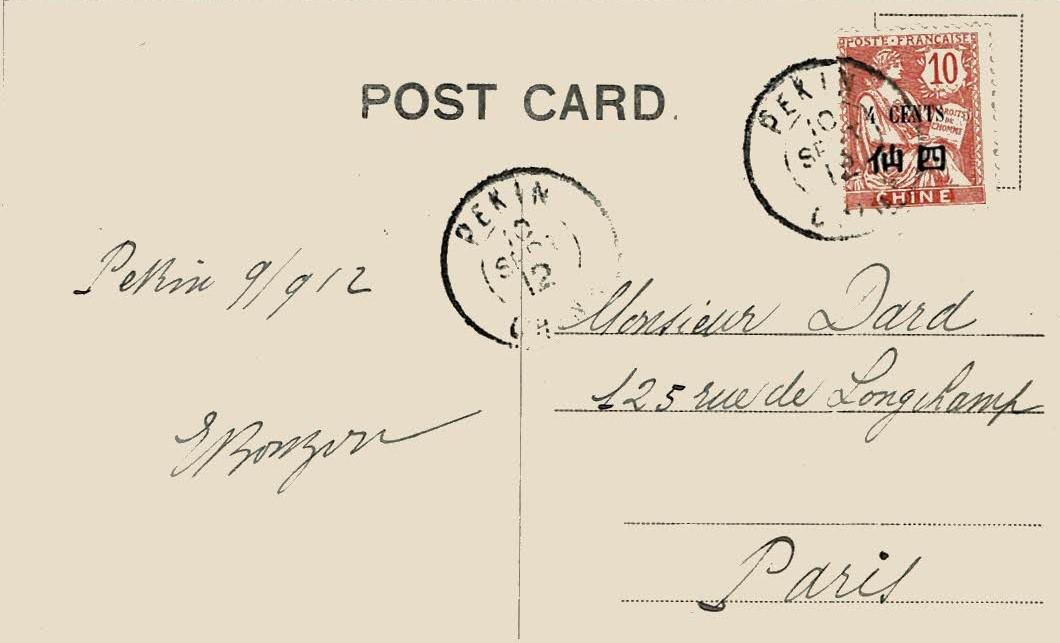 POST CARD.
POSTE·FRANÇAISE
10
DROITS
DE
L'HOMME
4 CENTS
仙四
CHINE
PEKIN
10
SEPT
12
CHINE
PEKIN
10
SEPT
12
CHINE
Pekin 9/9 12
Monsieur Dard
125 rue de Longchamp
Paris